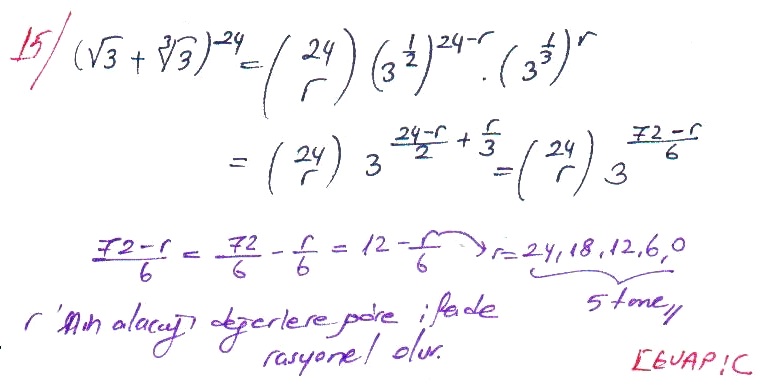 15/ (√3 + ∛3)^24 = (24 r) (3^(1/2))^(24-r) · (3^(1/3))^r
= (24 r) 3^((24-r)/2 + r/3) = (24 r) 3^((72-r)/6)
(72-r)/6 = 72/6 - r/6 = 12 - r/6 → r = 24, 18, 12, 6, 0
5 tane //
r 'nin alacağı değerlere göre ifade
rasyonel olur.
CEVAP: C